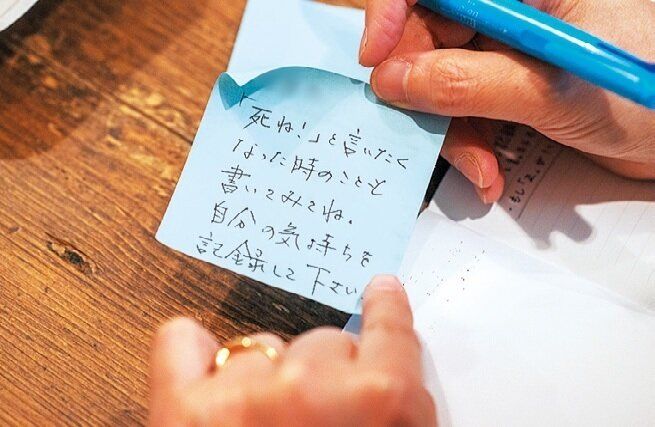 「死ね!」と言いたく
なった時のことも
書いてみてね。
自分の気持ちを
記録して下さい